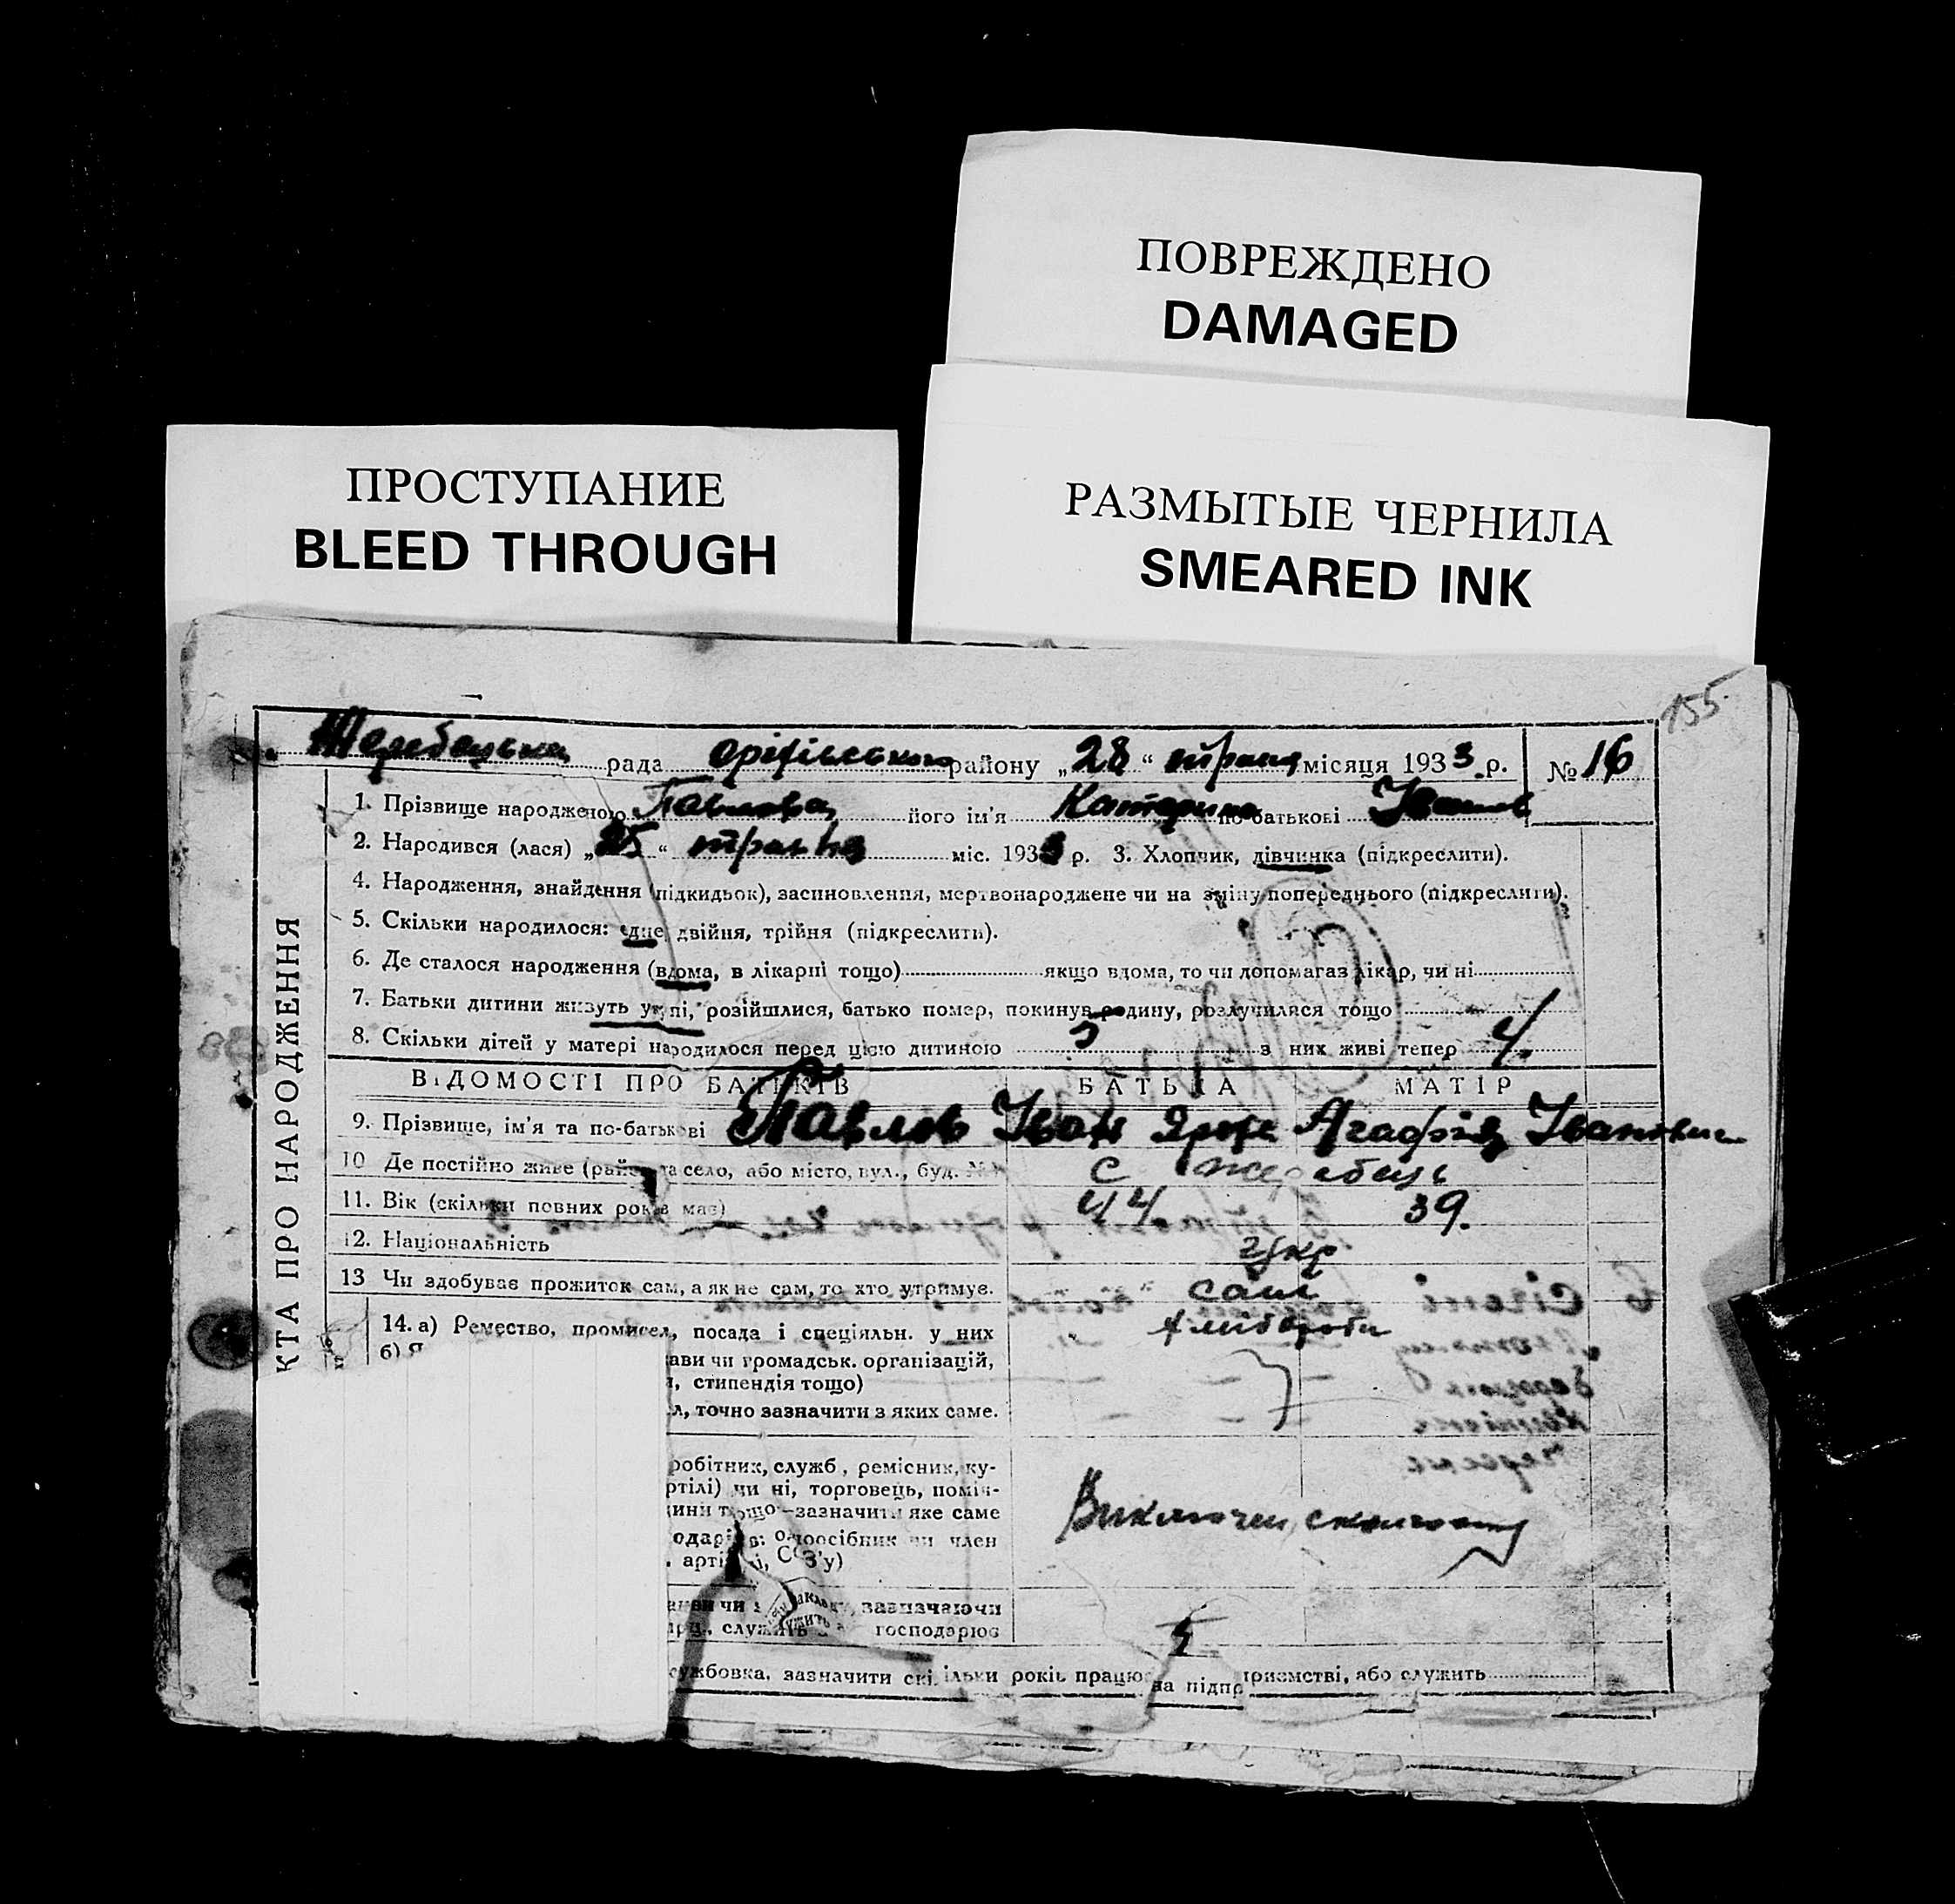 ПОВРЕЖДЕНО
DAMAGED
ПРОСТУПАНИЕ
BLEED THROUGH
РАЗМЫТЫЕ ЧЕРНИЛА
SMEARED INK
155
Жеребецька рада оріхівського району „28“ травня місяця 1933 р. № 16
1. Прізвище народженого Павлова його ім'я Катерина по батькові Іванов
2. Народився (лася) „25“ травня міс. 1933 р. 3. Хлопчик, дівчинка (підкреслити).
4. Народження, знайдення (підкидьок), засиновлення, мертвонароджене чи на зміну попереднього (підкреслити).
5. Скільки народилося: одне двійня, трійня (підкреслити).
6. Де сталося народження (вдома, в лікарні тощо) якщо вдома, то чи допомагав лікар, чи ні
7. Батьки дитини живуть укупі, розійшлися, батько помер, покинув родину, розлучилися тощо
8. Скільки дітей у матері народилося перед цією дитиною з них живі тепер 4.
ВІДОМОСТІ ПРО БАТЬКІВ БАТЬКА МАТІР
9. Прізвище, ім'я та по-батькові Павлов Іван Агафія Івановна
10 Де постійно живе (район та село, або місто, вул., буд. № с Жеребець
11. Вік (скільки повних років має) 44 39.
12. Національність Укр
13 Чи здобував прожиток сам, а як не сам, то хто утримує. сам
14. а) Ремество, промисел, посада і спеціяльн. у них хлібороби
б) Я ави чи громадськ. організацій,
, стипендія тощо)
л, точно зазначити з яких саме.
робітник, служб., ремісник, ку-
ртілі) чи ні, торговець, поміч-
ини тощо—зазначити яке саме
одарів: одноосібник чи член
артілі, СОЗ'у)
Виключен
зазначаючи
господарює
ужбовка, зазначити скільки років працює на підприємстві, або служить
КТА ПРО НАРОДЖЕННЯ